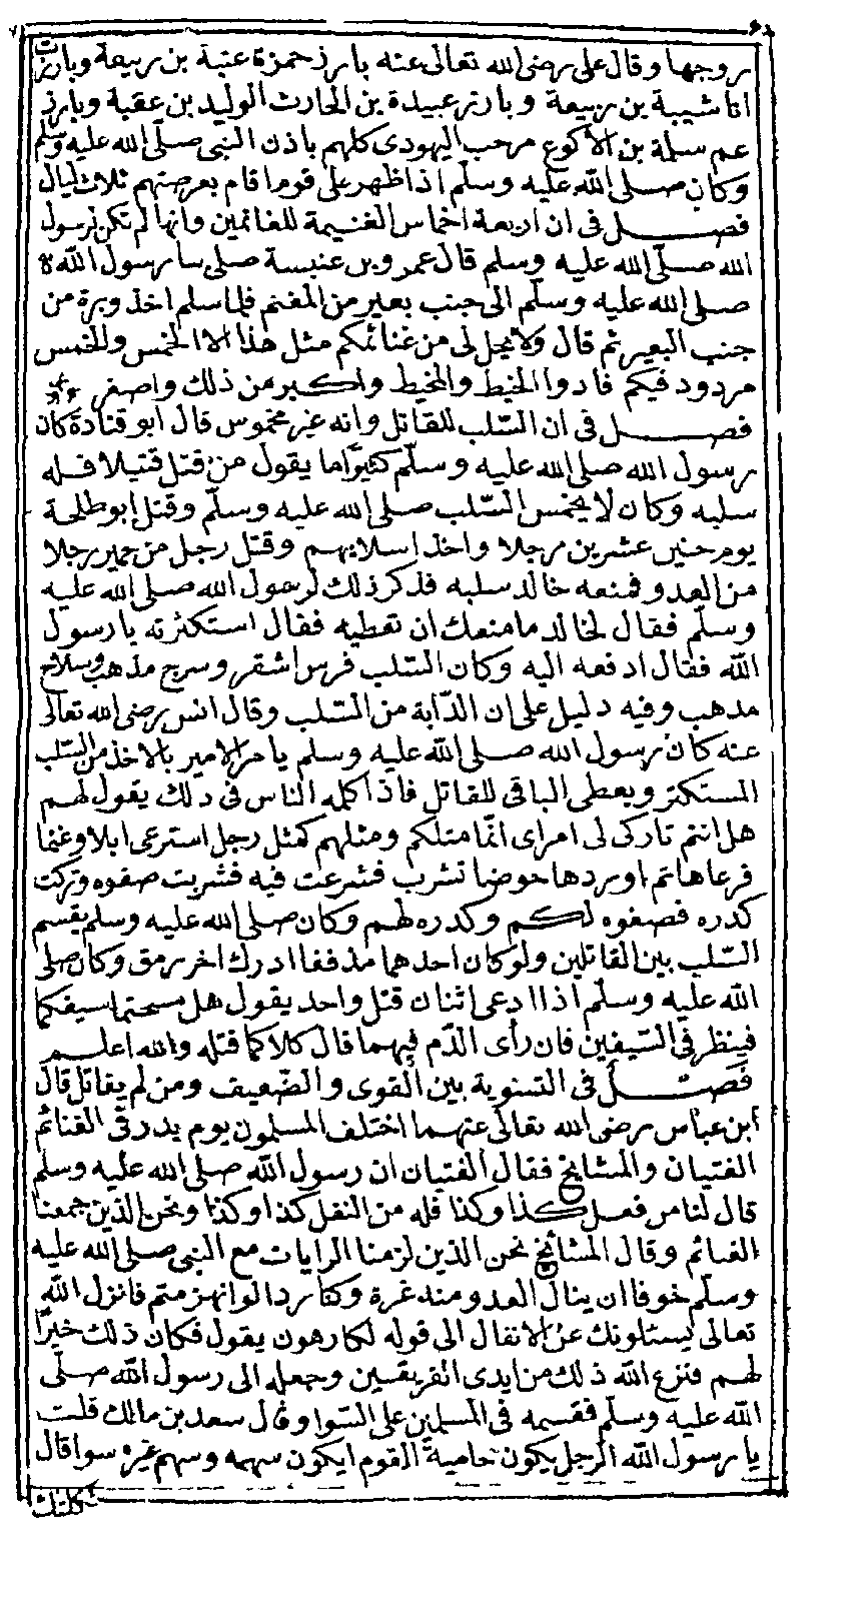 روجها وقال على رضى الله تعالى عنه بارز حمزة عتبة بن ربيعة وبارزت
انا شيبة بن ربيعة وبارز عبيدة بن الحارث الوليد بن عقبة وبارز
عم سلمة بن الأكوع مرحب اليهودى كلهم باذن النبى صلى الله عليه وسلم
وكان صلى الله عليه وسلم اذا ظهر على قوم اقام بعرصتهم ثلاث ليال
فصل فى ان اربعة اخماس الغنيمة للغانمين وانها لم تكن لرسول
الله صلى الله عليه وسلم قال عمرو بن عنبسة صلى بنا رسول الله
صلى الله عليه وسلم الى جنب بعير من المغنم فلما سلم اخذ وبرة من
جنب البعير ثم قال ولا يحل لى من غنائكم مثل هذا الا الخمس والخمس
مردود فيكم فادوا الخيط والمخيط واكبر من ذلك واصغر
فصل فى ان السّلب للقاتل وانه غير مخموس قال ابو قتادة كان
رسول الله صلى الله عليه وسلّم كثيرًا ما يقول من قتل قتيلا فله
سلبه وكان لا يخمس السّلب صلى الله عليه وسلّم وقتل ابو طلحة
يوم حنين عشرين رجلا واخذ اسلابهم وقتل رجل من حمير رجلا
من العدو فمنعه خالد سلبه فذكر ذلك لرسول الله صلى الله عليه
وسلّم فقال لخالد ما منعك ان تعطيه فقال استكثرته يا رسول
الله فقال ادفعه اليه وكان السّلب فرس اشقر وسرج مذهب وسلاح
مذهب وفيه دليل على ان الدّابة من السّلب وقال انس رضى الله تعالى
عنه كان رسول الله صلى الله عليه وسلم يامر الامير بالاخذ من السّلب
المستكثر ويعطى الباقى للقاتل فاذا كلمه الناس فى ذلك يقول لهم
هل انتم تاركى لى امراى انّما مثلكم ومثلهم كمثل رجل استرعى ابلا وغنما
فرعاها ثم اوردها حوضا تشرب فشرعت فيه فشربت صفوه وتركت
كدره فصفوه لكم وكدره لهم وكان صلى الله عليه وسلم يقسم
السّلب بين القاتلين ولو كان احدهما مذففا ادرك اخر رمق وكان صلى
الله عليه وسلّم اذا ادعى اثنان قتل واحد يقول هل مسحتما سيفكما
فينظر فى السّيفين فان رأى الدّم فيهما قال كلاكما قتله والله اعلم
فصل فى التسوية بين القوى والضّعيف ومن لم يقاتل قال
ابن عباس رضى الله تعالى عنهما اختلف المسلمون يوم بدر فى الغنائم
الفتيان والمشايخ فقال الفتيان ان رسول الله صلى الله عليه وسلم
قال لنا من فعل كذا وكذا فله من النفل كذا وكذا ونحن الذين جمعنا
الغنائم وقال المشائخ نحن الذين لزمنا الرايات مع النبى صلى الله عليه
وسلّم خوفا ان ينال العدو منه غرة وكنا ردا لو انهزمتم فانزل الله
تعالى يسئلونك عن الانفال الى قوله لكارهون يقول فكان ذلك خيرًا
لهم فنزع الله ذلك من ايدى الفريقين وجعله الى رسول الله صلّى
الله عليه وسلّم فقسمه فى المسلمين على السّوا وقال سعد بن مالك قلت
يا رسول الله الرجل يكون حامية القوم ايكون سهمه وسهم غيره سوا قال
ثكلتك